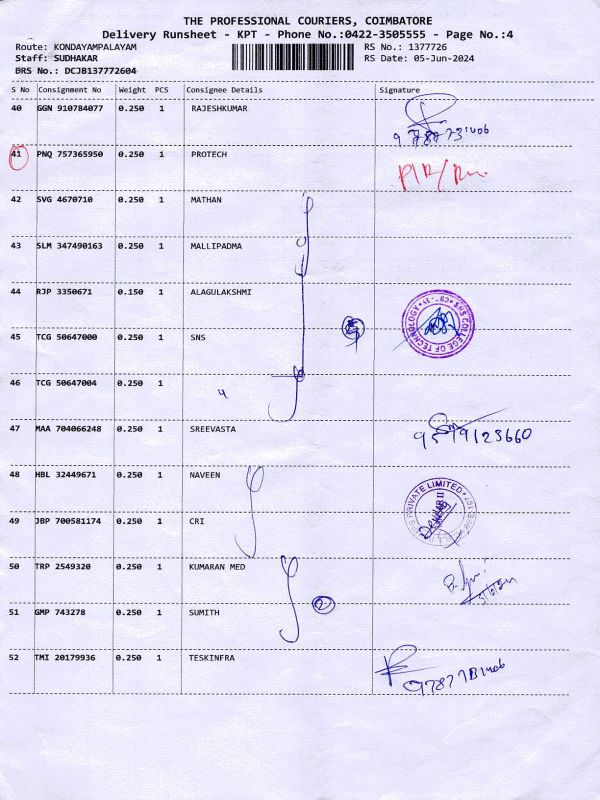 THE PROFESSIONAL COURIERS, COIMBATORE
Delivery Runsheet - KPT - Phone No.:0422-3505555 - Page No.:4
Route: KONDAYAMPALAYAM RS No.: 1377726
Staff: SUDHAKAR RS Date: 05-Jun-2024
DRS No.: DCJB137772604
S No Consignment No Weight PCS Consignee Details Signature
40 GGN 910784077 0.250 1 RAJESHKUMAR
41 PNQ 757365950 0.250 1 PROTECH
42 SVG 4670710 0.250 1 MATHAN
43 SLM 347490163 0.250 1 MALLIPADMA
44 RJP 3350671 0.150 1 ALAGULAKSHMI
45 TCG 50647000 0.250 1 SNS
SNS COLLEGE OF TECHNOLOGY
46 TCG 50647004 0.250 1
4
47 MAA 704066248 0.250 1 SREEVASTA
48 HBL 32449671 0.250 1 NAVEEN
PRIVATE LIMITED
49 JBP 700581174 0.250 1 CRI
50 TRP 2549320 0.250 1 KUMARAN MED
2
51 GMP 743278 0.250 1 SUMITH
52 TMI 20179936 0.250 1 TESKINFRA